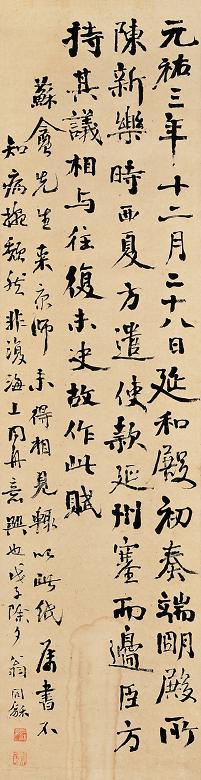 元祐三年十二月二十八日延和殿初奏端明殿所
陳新樂時西夏方遣使款延州塞而邊臣方
持其議相与往復未决故作此賦
蘇盦先生来京師未得相見輒以此紙属書不
知病擁頽然非復海上同舟意興也戊子除夕 翁同龢